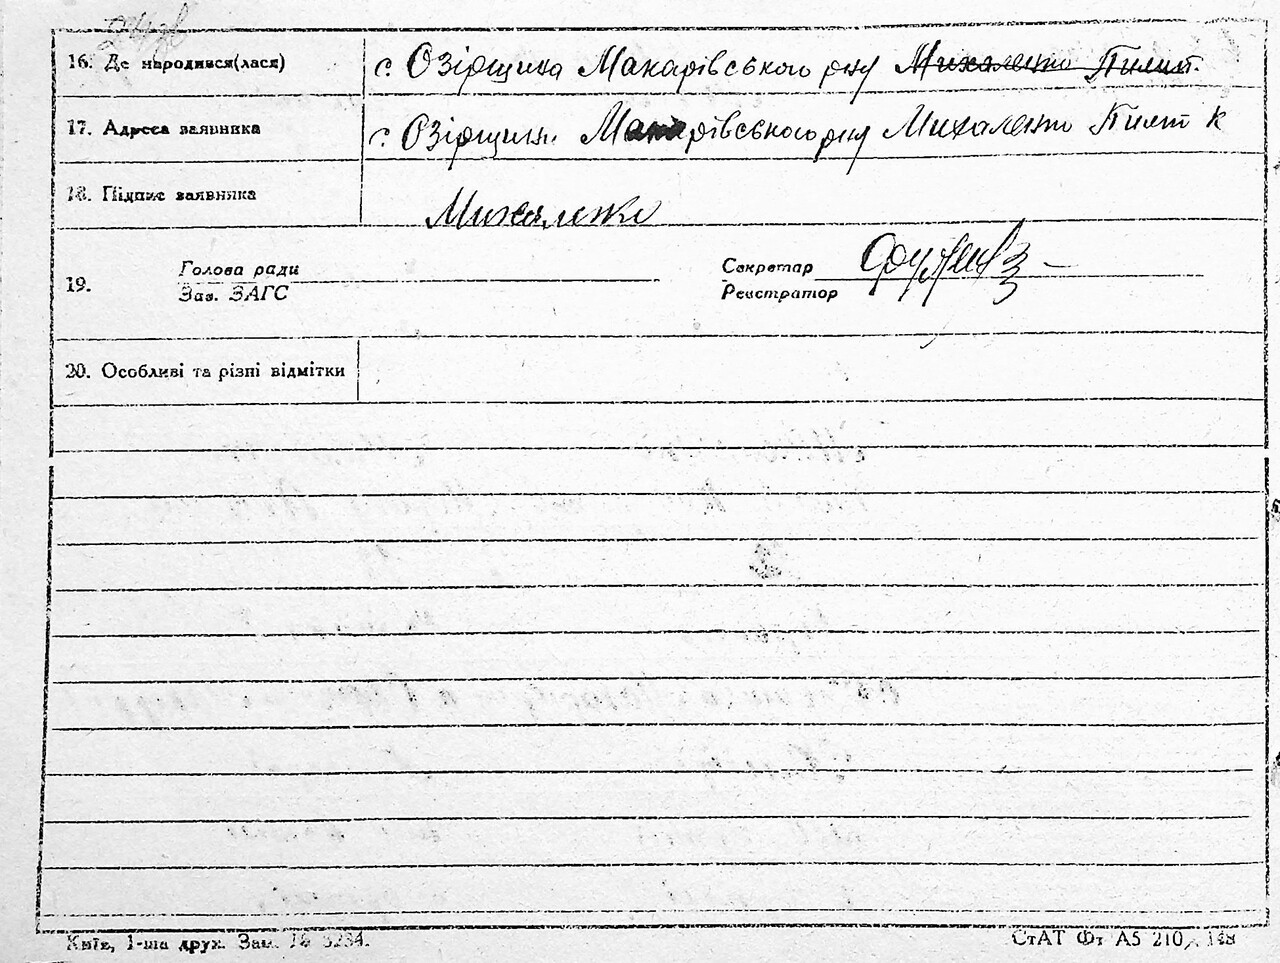 16. Де народився(лася) с. Озірщина Макарівського р-ну Михаленко Пилип
17. Адреса заявника с. Озірщина Макарівського р-ну Михаленко Пилип К
18. Підпис заявника Михаленко
19. Голова ради Секретар
Зав. ЗАГС Реєстратор
20. Особливі та різні відмітки
Київ, 1-ша друк. Зам. № 3234.
СтАТ Фт А5 210 148